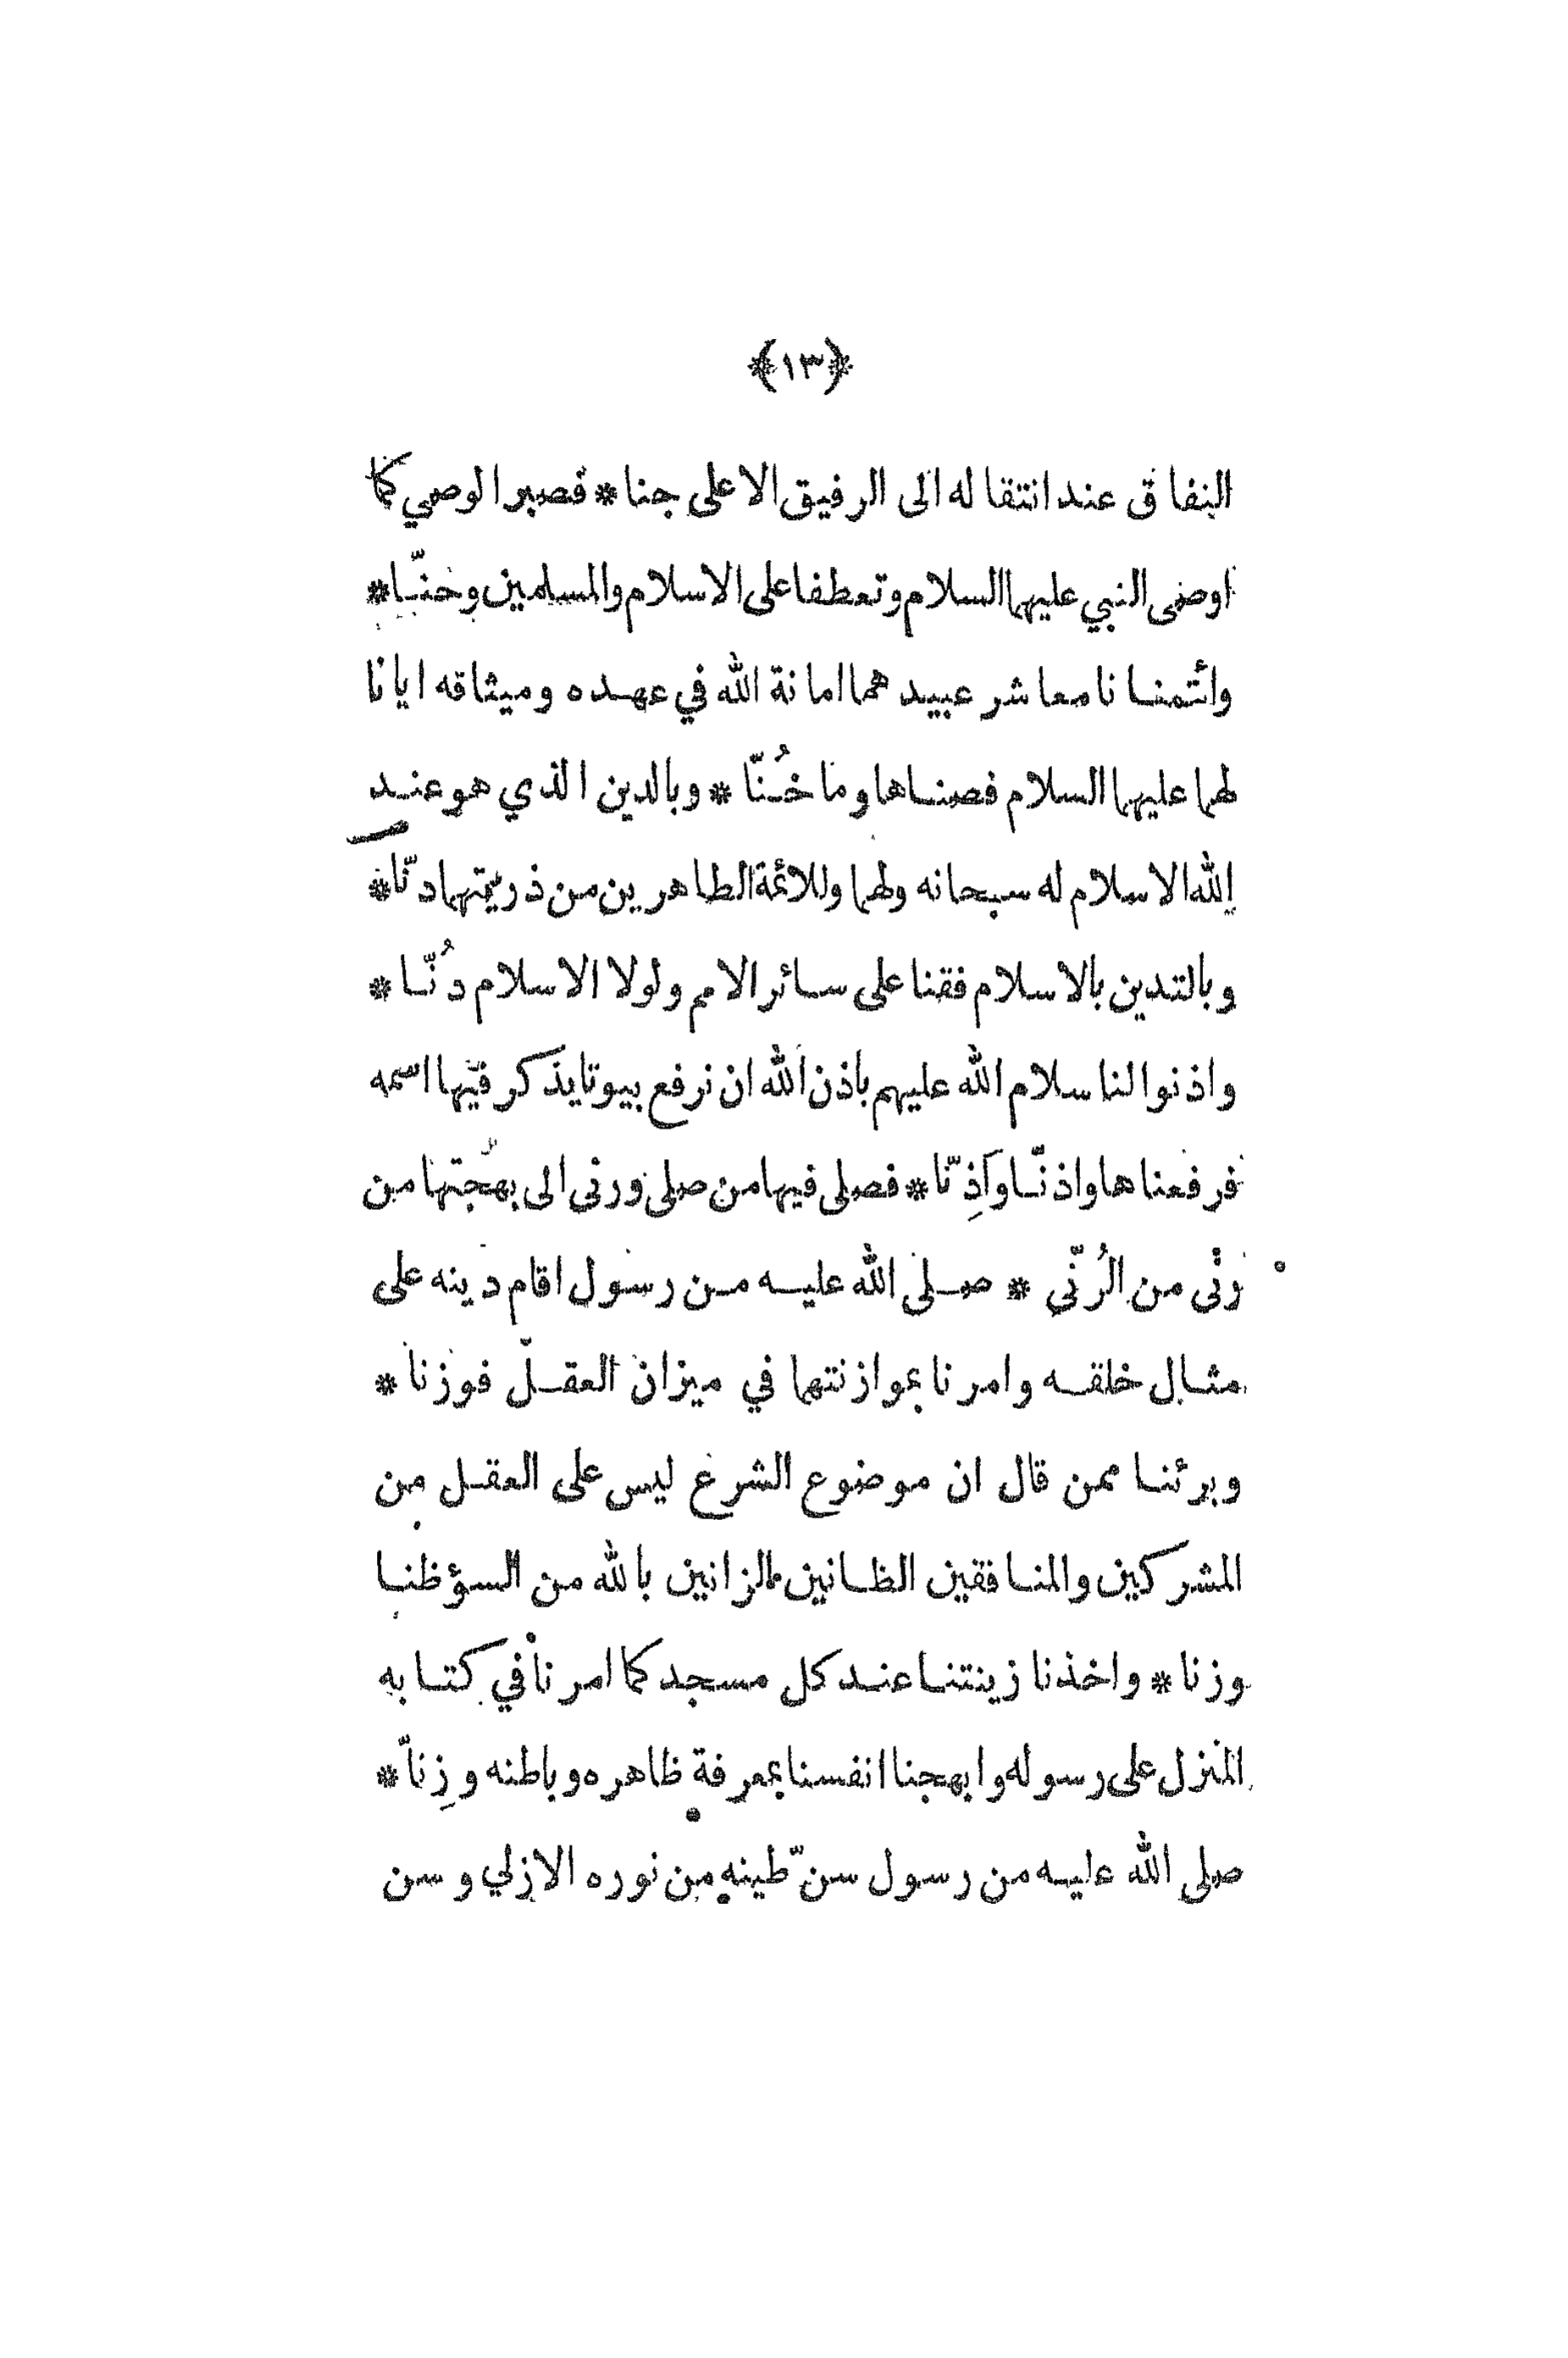 ﴿١٣﴾
النفاق عند انتقاله الى الرفيق الاعلى جنا * فصبر الوصي كما
اوصى النبي عليهما السلام وتعطفا على الاسلام والمسلمين وحنّا *
وائتمنانا معاشر عبيدهما امانة الله في عهده وميثاقه ايانا
لهما عليهما السلام فصناها وما خُنّا * وبالدين الذي هو عند
الله الاسلام له سبحانه ولهما وللائمة الطاهرين من ذريتهما دنّا *
وبالتدين بالاسلام فقنا على سائر الامم ولولا الاسلام دُنّا *
واذنوا لنا سلام الله عليهم باذن الله ان نرفع بيوتا يذكر فيها اسمه
فرفعناها واذنّا وآذِنّا * فصلى فيها من صلى ورنى الى بهجتها من
رنى من الرُنّي * صلى الله عليه من رسول اقام دينه على
مثال خلقه وامرنا بموازنتهما في ميزان العقل فوزنا *
وبرئنا ممن قال ان موضوع الشرع ليس على العقل من
المشركين والمنافقين الظانين بالله من السؤ ظنا
وزنا * واخذنا زينتنا عند كل مسجد كما امرنا في كتابه
المنزل على رسوله وابهجنا انفسنا بمعرفة ظاهره وباطنه وزِنّا *
صلى الله عليه من رسول سنّ طينه من نوره الازلي وسن